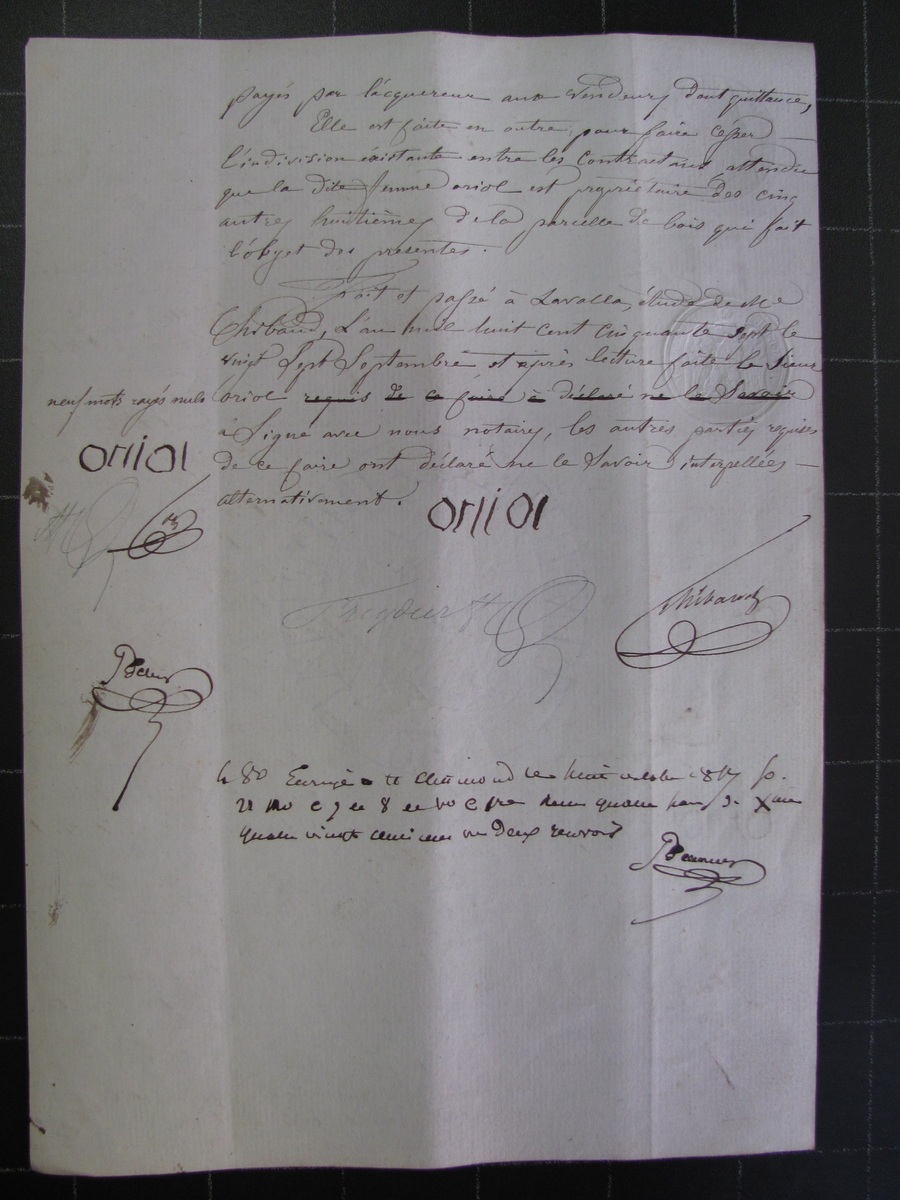 payés par l'acquereur aux vendeurs dont quittance,
Elle est faite en outre pour faire cesser
l'indivision éxistante entre les contractans, attendu
que la dite femme oriol est propriétaire des cinq
autres huitièmes de la parcelle de bois qui fait
l'objet des presentes.
Fait et passé à Lavalla, étude de Me
Thibaud, L'an mil huit cent cinquante sept le
vingt Sept Septembre et après lecture faite le Sieur
oriol requis de ce faire a déclaré ne le Savoir
à Signé avec nous notaires, les autres parties requises
de ce faire ont déclaré ne le Savoir interpellées
alternativement.
neuf mots rayés nuls
oriol
oriol
Freydier
Thibaud
huit
quatre vingt deux renvois